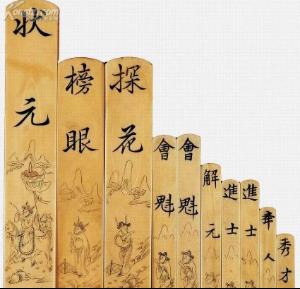 状元
榜眼
探花
會魁
會魁
解元
進士
進士
舉人
秀才